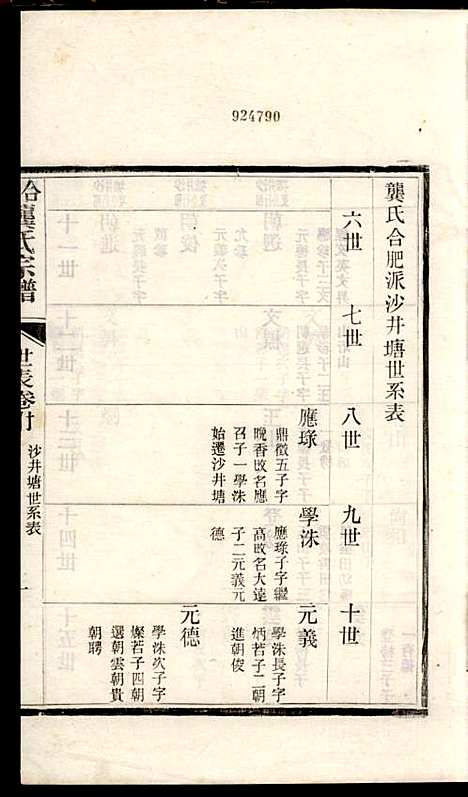 924790
龔氏合肥派沙井塘世系表
六世
七世
八世
九世
十世
應琭
鼎徵五子字
晚香改名應
召子一學洙
始遷沙井塘
學洙
應琭子字繼
高改名大遠
子二元義元
德
元義
學洙長子字
炳若子二朝
進朝俊
元德
學洙次子字
燦若子四朝
選朝雲朝貴
朝聘
合龔氏宗譜
世表卷
沙井塘世系表
一